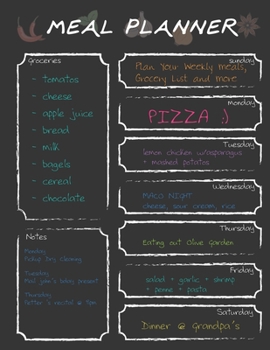 MEAL PLANNER
Groceries
- tomatos
- cheese
- apple juice
- bread
- milk
- bagels
- cereal
- chocolate
Notes
Monday
Pickup Dry cleaning
Tuesday
Mail Jane's bday present
Thursday
recital @ 7pm
Sunday
Plan Your Weekly meals,
Grocery List and more
Monday
PIZZA :)
Tuesday
lemon chicken w/asparagus
+ mashed potatos
Wednesday
TACO NIGHT
cheese, sour cream, rice
Thursday
Eating out Olive Garden
Friday
salad + garlic + shrimp
+ penne + pasta
Saturday
Dinner @ Grandpa's